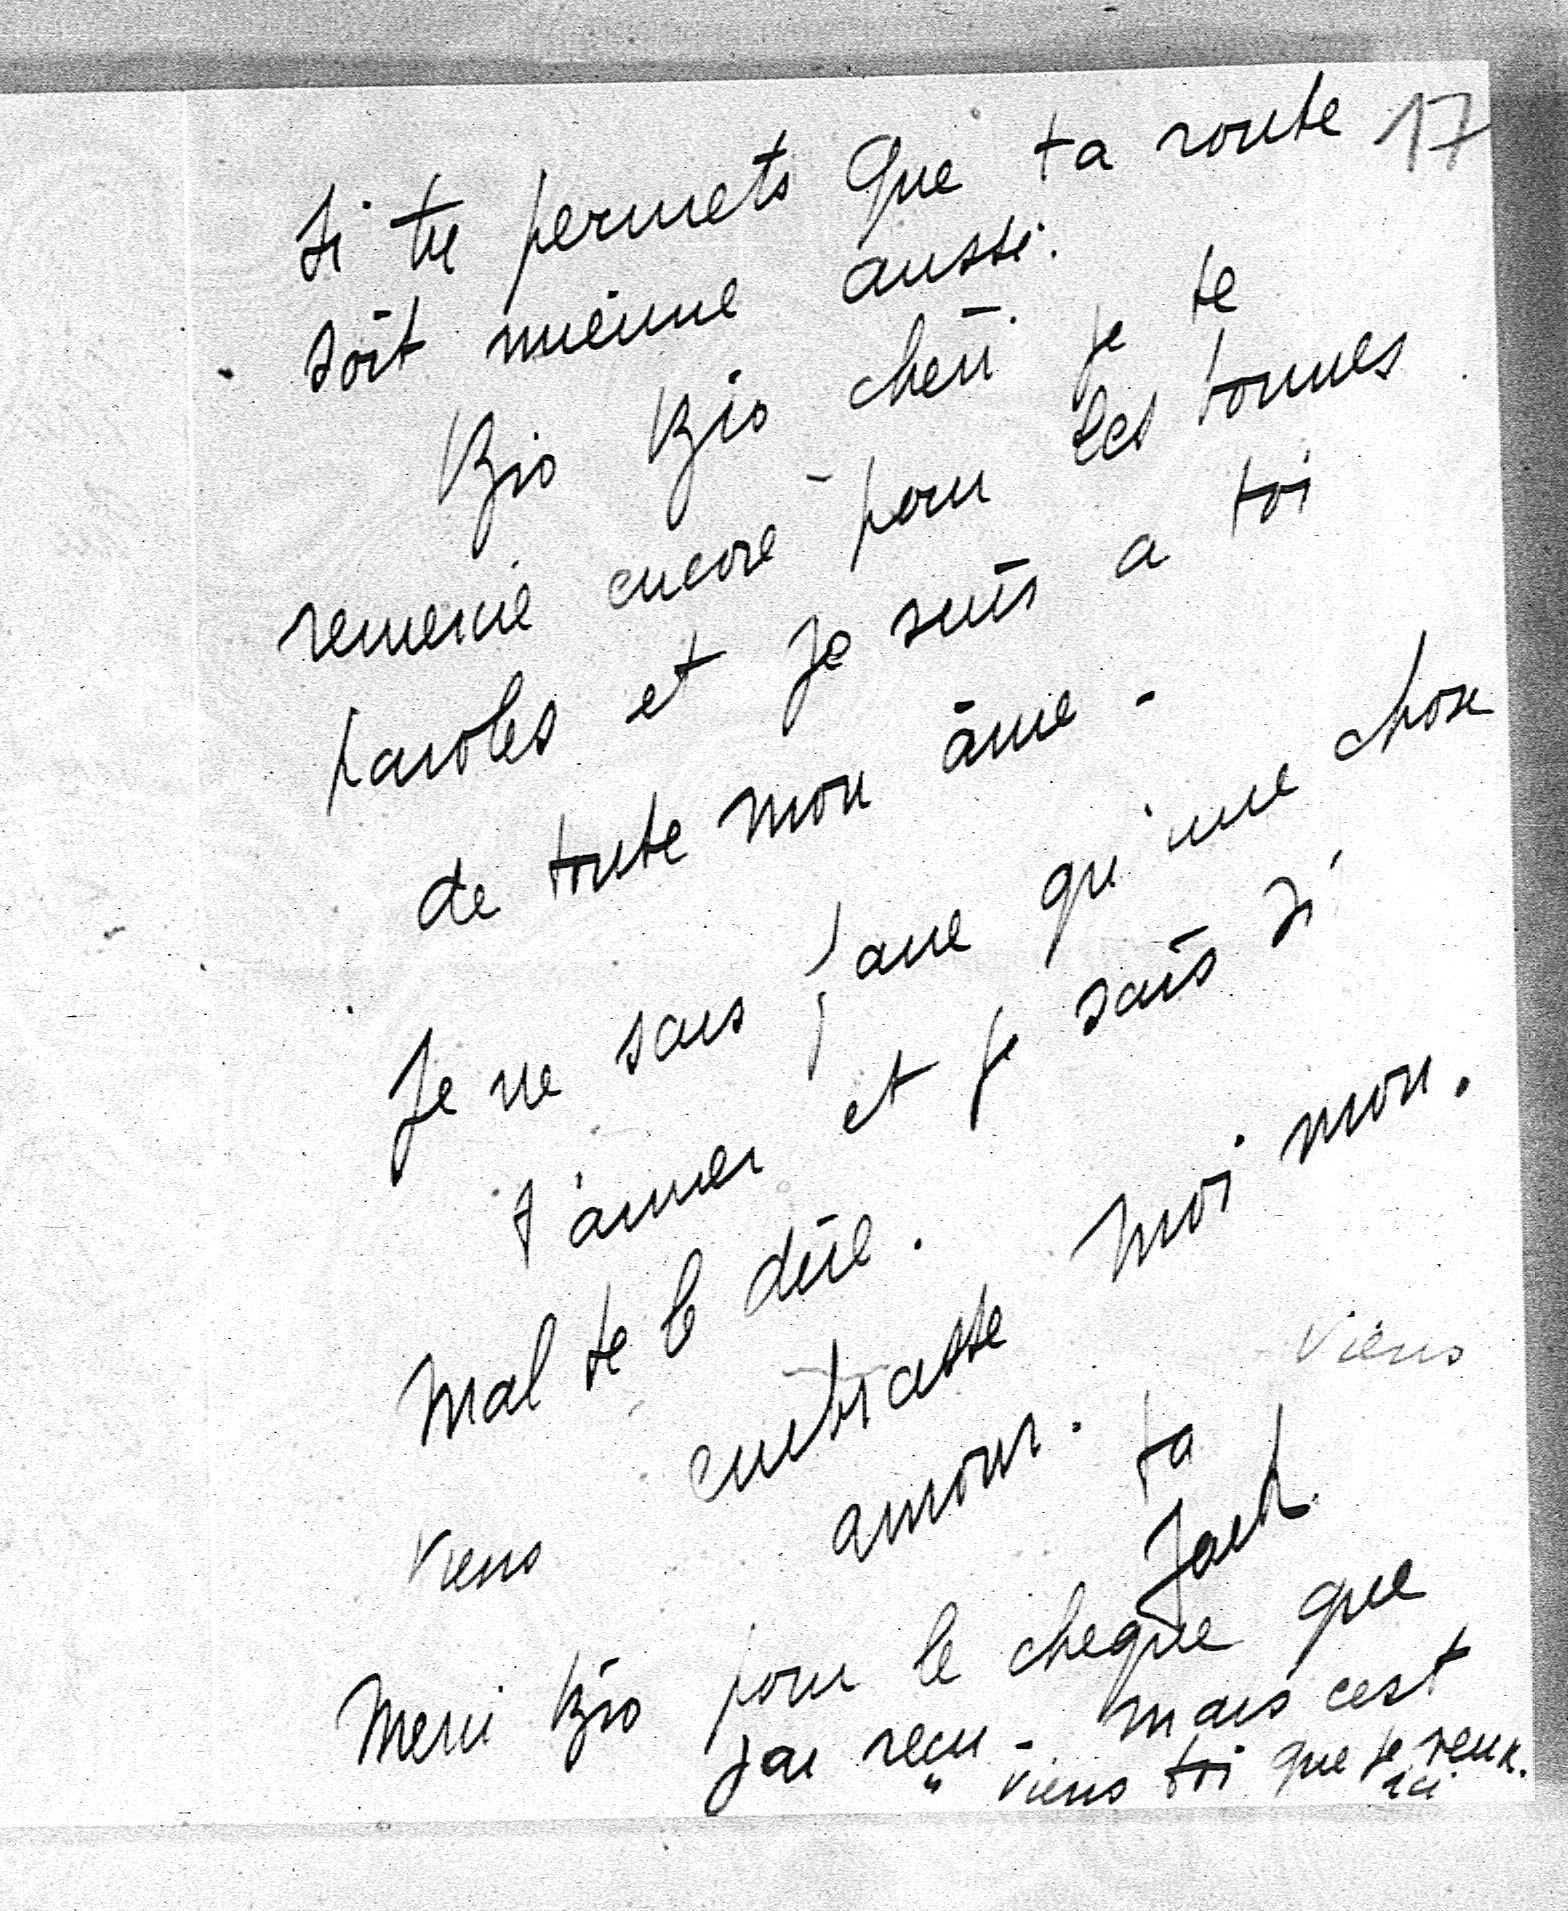 17
Si tu permets que ta route
soit mienne aussi.
Kio Kio chéri je te
remercie encore pour tes bonnes
paroles et je suis a toi
de toute mon âme -
Je ne sais faire qu'une chose
t'aimer et je sais si
mal te le dire.
viens embrasse moi mon.
amour. viens
ta
Merci Kio pour le cheque que
j'ai reçu - mais c'est
viens toi que je veux.
ici